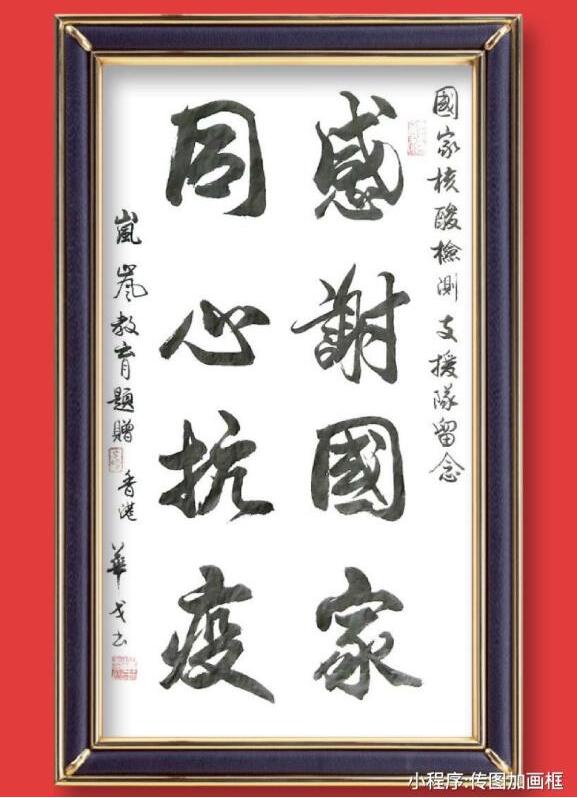 國家核酸檢測支援隊留念
感謝國家
同心抗疫
嵐嵐教育題贈
香港
華戈书
小程序:传图加画框